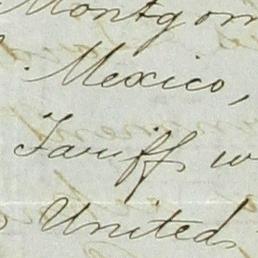 Montgom
Mexico,
Tariff w
United